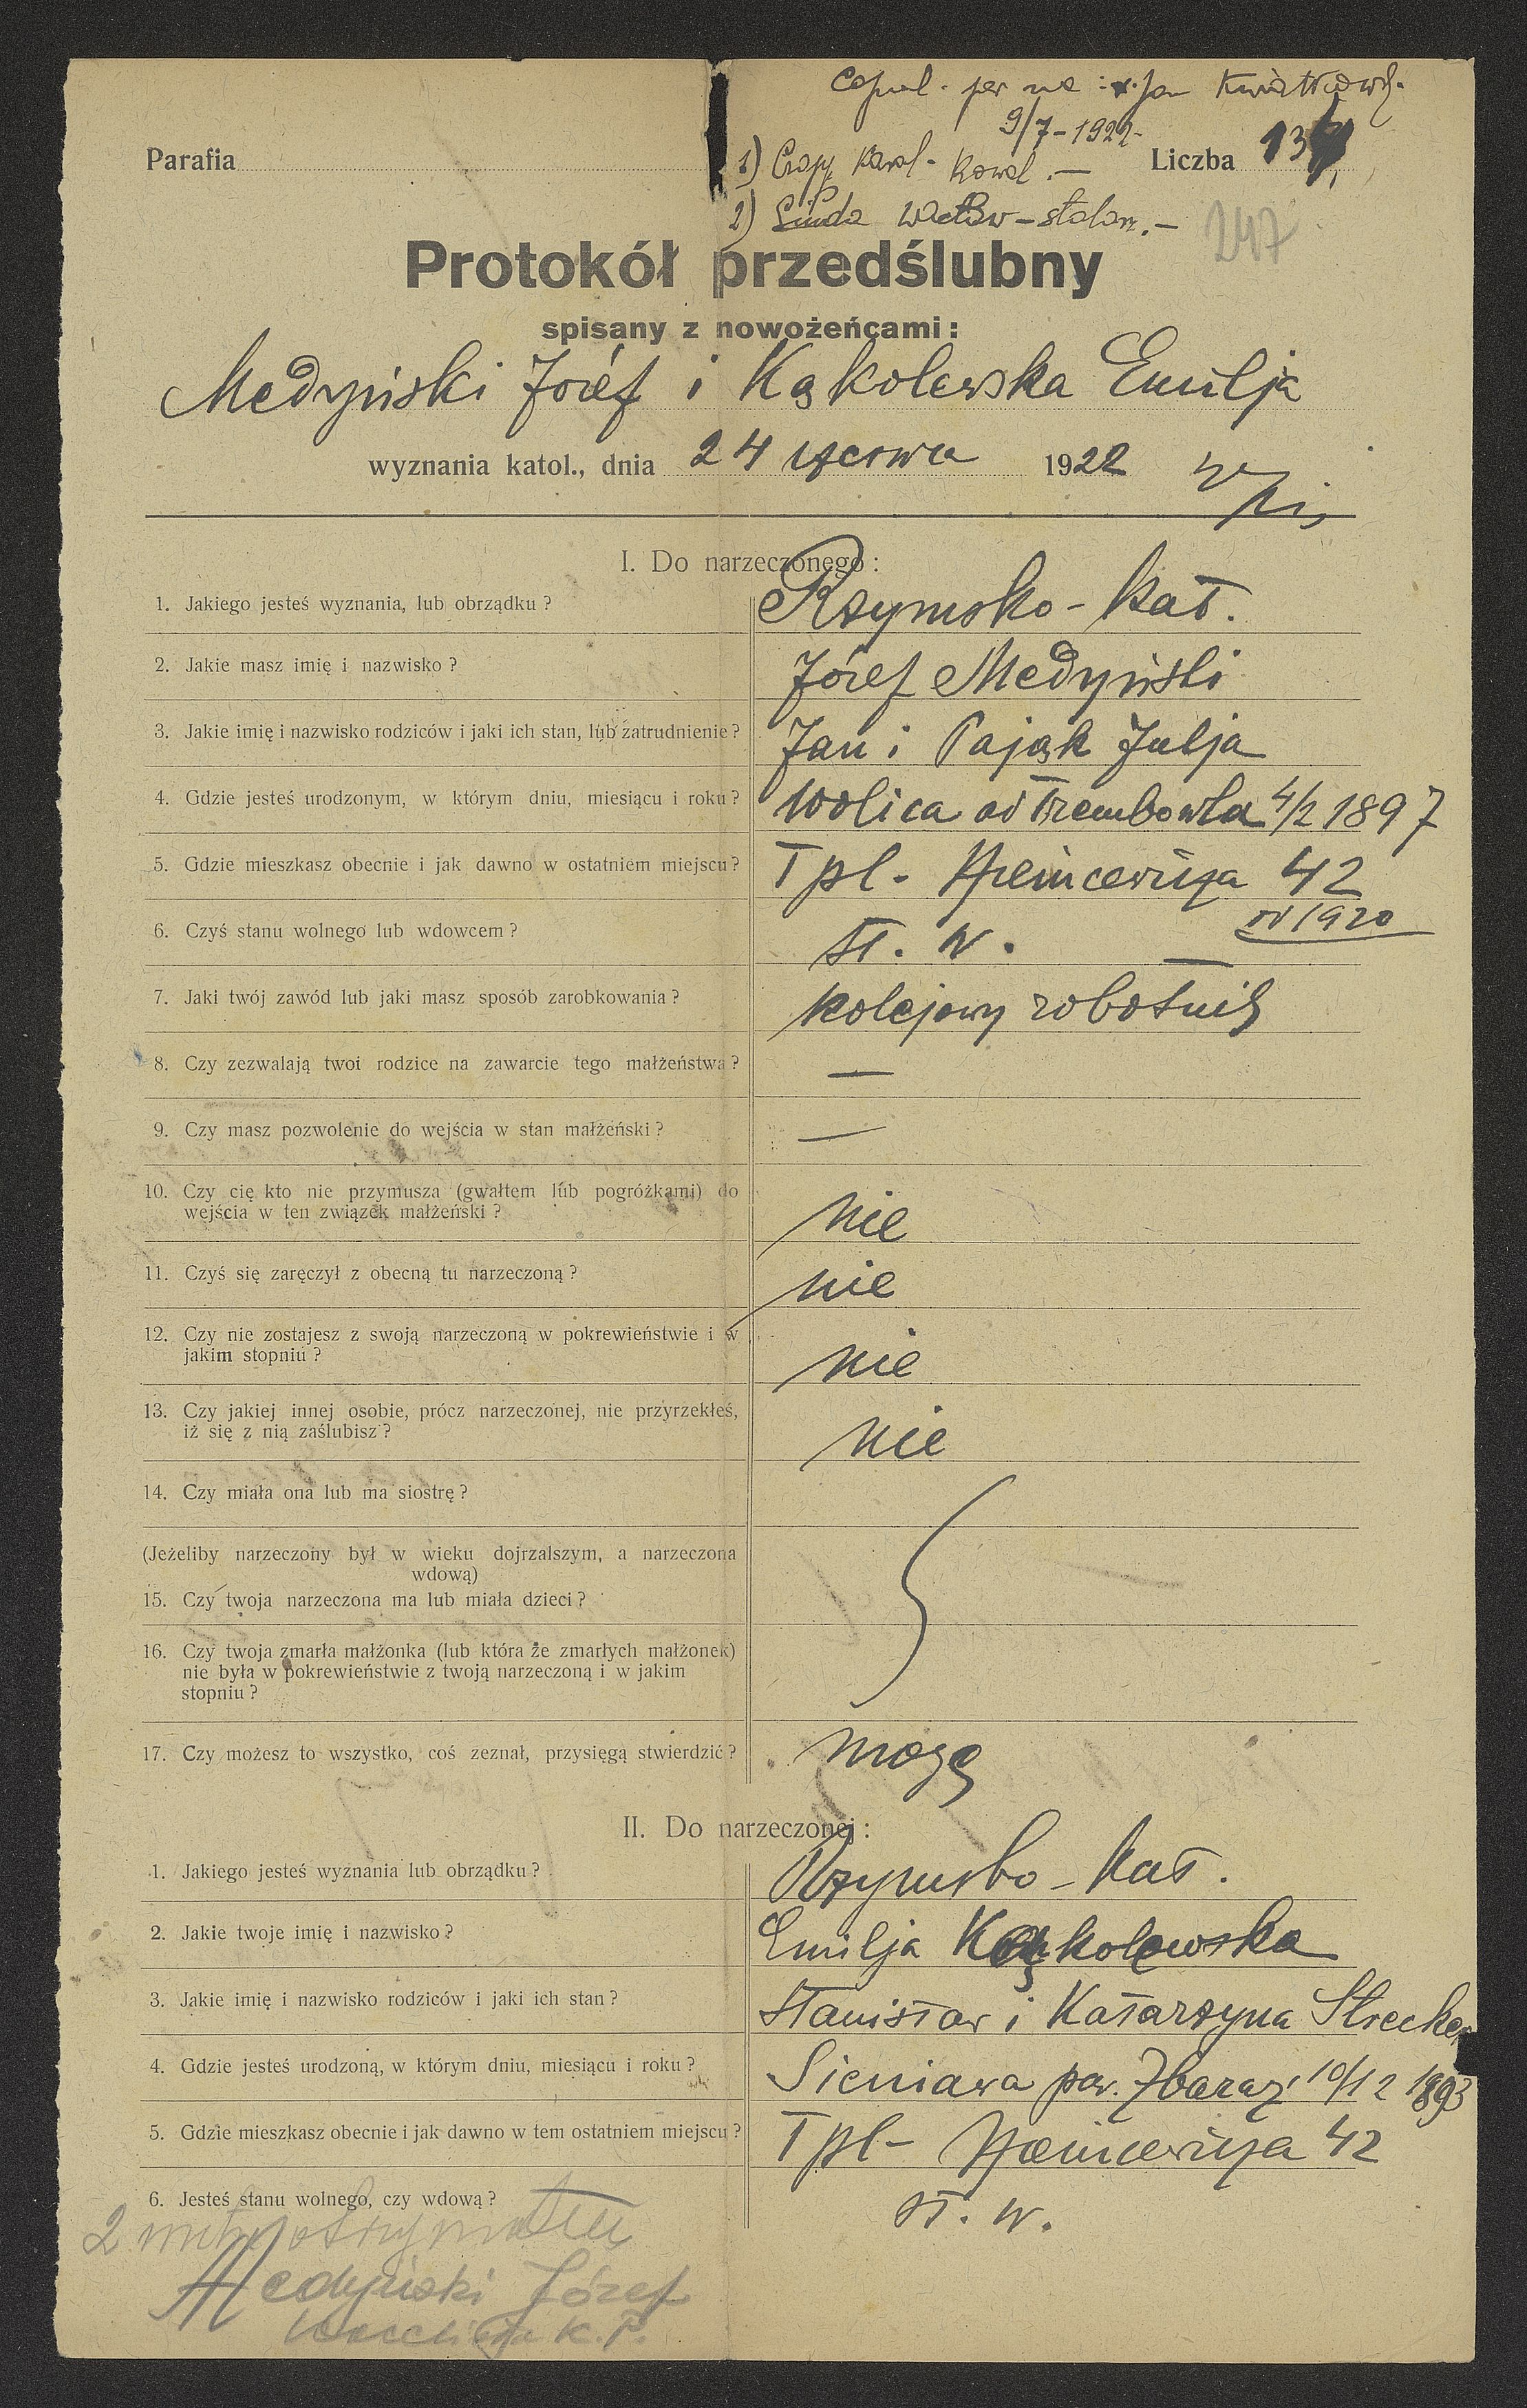 Copul. per me : x. Jan Kwiatkowsk.
9/7-1922-
Parafia
1) Karol - Kowal . —
Liczba 134
2) Linda Wacław - stolarz. —
247
Protokół przedślubny
spisany z nowożeńcami:
Medyński Józef i Kąkolewska Emilja
wyznania katol., dnia 24 czerwca 1922
I. Do narzeczonego:
1. Jakiego jesteś wyznania, lub obrządku? Rzymsko - kat.
2. Jakie masz imię i nazwisko? Józef Medyński
3. Jakie imię i nazwisko rodziców i jaki ich stan, lub zatrudnienie? Jan i Pająk Julja
4. Gdzie jesteś urodzonym, w którym dniu, miesiącu i roku? Wolica ad Trembowla 4/2 1897
5. Gdzie mieszkasz obecnie i jak dawno w ostatniem miejscu? Tpl - Niemcewicza 42
IV 1920
6. Czyś stanu wolnego lub wdowcem? st. w.
7. Jaki twój zawód lub jaki masz sposób zarobkowania? kolejowy robotnik
8. Czy zezwalają twoi rodzice na zawarcie tego małżeństwa? —
9. Czy masz pozwolenie do wejścia w stan małżeński? —
10. Czy cię kto nie przymusza (gwałtem lub pogróżkami) do
wejścia w ten związek małżeński? nie
11. Czyś się zaręczył z obecną tu narzeczoną? nie
12. Czy nie zostajesz z swoją narzeczoną w pokrewieństwie i w
jakim stopniu? nie
13. Czy jakiej innej osobie, prócz narzeczonej, nie przyrzekłeś,
iż się z nią zaślubisz? nie
14. Czy miała ona lub ma siostrę?
(Jeżeliby narzeczony był w wieku dojrzalszym, a narzeczona
wdową)
15. Czy twoja narzeczona ma lub miała dzieci?
16. Czy twoja zmarła małżonka (lub która że zmarłych małżonek)
nie była w pokrewieństwie z twoją narzeczoną i w jakim
stopniu?
17. Czy możesz to wszystko, coś zeznał, przysięgą stwierdzić? mogę
II. Do narzeczonej:
1. Jakiego jesteś wyznania lub obrządku? Rzymsko - kat.
2. Jakie twoje imię i nazwisko? Emilja Kąkolewska
3. Jakie imię i nazwisko rodziców i jaki ich stan? Stanisław i Katarzyna Strecker
4. Gdzie jesteś urodzoną, w którym dniu, miesiącu i roku? Sieniawa pow. Zbaraż 10/12 1893
5. Gdzie mieszkasz obecnie i jak dawno w tem ostatniem miejscu? Tpl - Niemcewicza 42
6. Jesteś stanu wolnego, czy wdową? st. w.
2 metr. otrzymałem
Medyński Józef
K. P.